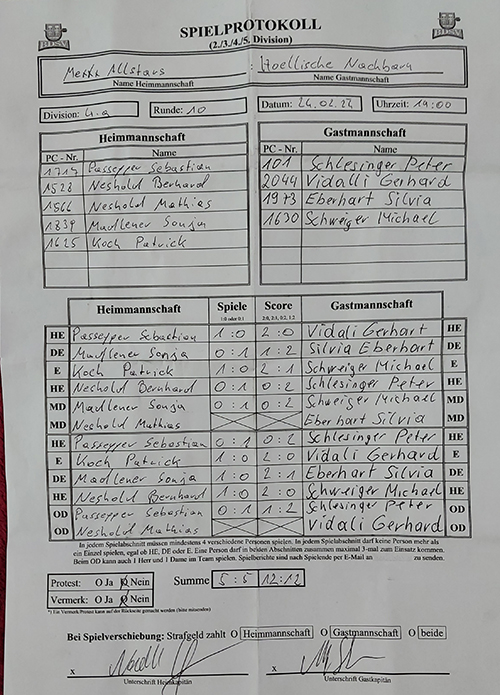 SPIELPROTOKOLL
(2./3./4./5. Division)
Allstars : Hoellische Nachbarn
Name Heimmannschaft Name Gastmannschaft
Division: 4.a Runde: 10 Datum: 24.02.22 Uhrzeit: 19:00
Heimmannschaft Gastmannschaft
PC - Nr. Name PC - Nr. Name
1714 Passepper Sebastian 101 Schlesinger Peter
1528 Neshold Berhard 2044 Vidalli Gerhard
1566 Neshold Mathias 1973 Eberhart Silvia
1839 Madlener Sonja 1630 Schweiger Michael
1625 Koch Patrick
Heimmannschaft Spiele Score Gastmannschaft
1:0 oder 0:1 2:0, 2:1, 0:2, 1:2
HE Passepper Sebastian 1:0 2:0 Vidali Gerhart HE
DE Madlener Sonja 0:1 1:2 Silvia Eberhart DE
E Koch Patrick 1:0 2:1 Schweiger Michael E
HE Neshold Bernhard 0:1 0:2 Schlesinger Peter HE
MD Madlener Sonja 0:1 0:2 Schweiger Michael MD
MD Neshold Mathias Eberhart Silvia MD
HE Passepper Sebastian 0:1 0:2 Schlesinger Peter HE
E Koch Patrick 1:0 2:0 Vidali Gerhard E
DE Madlener Sonja 1:0 2:1 Eberhart Silvia DE
HE Neshold Bernhard 1:0 2:0 Schweiger Michael HE
OD Passepper Sebastian 0:1 1:2 Schlesinger Peter OD
OD Neshold Mathias Vidali Gerhard OD
In jedem Spielabschnitt müssen mindestens 4 verschiedene Personen spielen. In jedem Spielabschnitt darf keine Person mehr als
ein Einzel spielen, egal ob HE, DE oder E. Eine Person darf in beiden Abschnitten zusammen maximal 3-mal zum Einsatz kommen.
Beim OD kann auch 1 Herr und 1 Dame im Team spielen. Spielberichte sind nach Spielende per E-Mail an zu senden.
Protest: O Ja O Nein Summe 5:5 12:12
Vermerk: O Ja O Nein
*) Ein Vermerk/Protest kann auf der Rückseite gemacht werden (bitte ankreuzen)
Bei Spielverschiebung: Strafgeld zahlt O Heimmannschaft O Gastmannschaft O beide
x x
Unterschrift Heimkapitän Unterschrift Gastkapitän